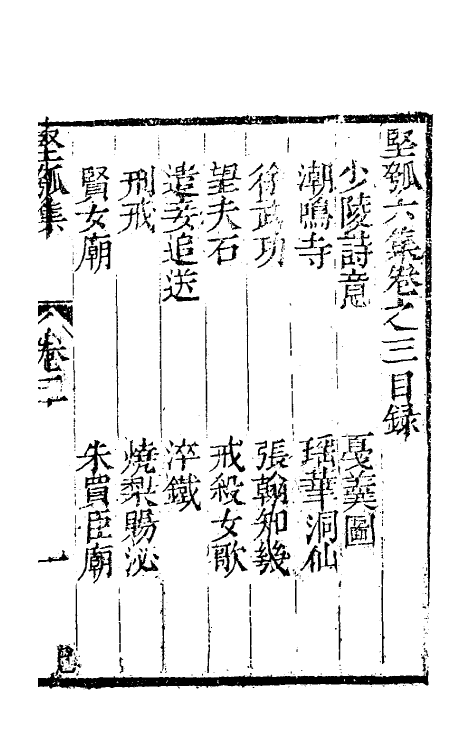 堅瓠六集卷之三目録
少陵詩意　戞羹圖
潮鳴寺　瑶華洞仙
徐武功　張翰知幾
望夫石　戒殺女歌
遣妾追送　淬鐵
刑戒　燒梨賜泌
賢女廟　朱買臣廟
堅瓠集　卷三　一